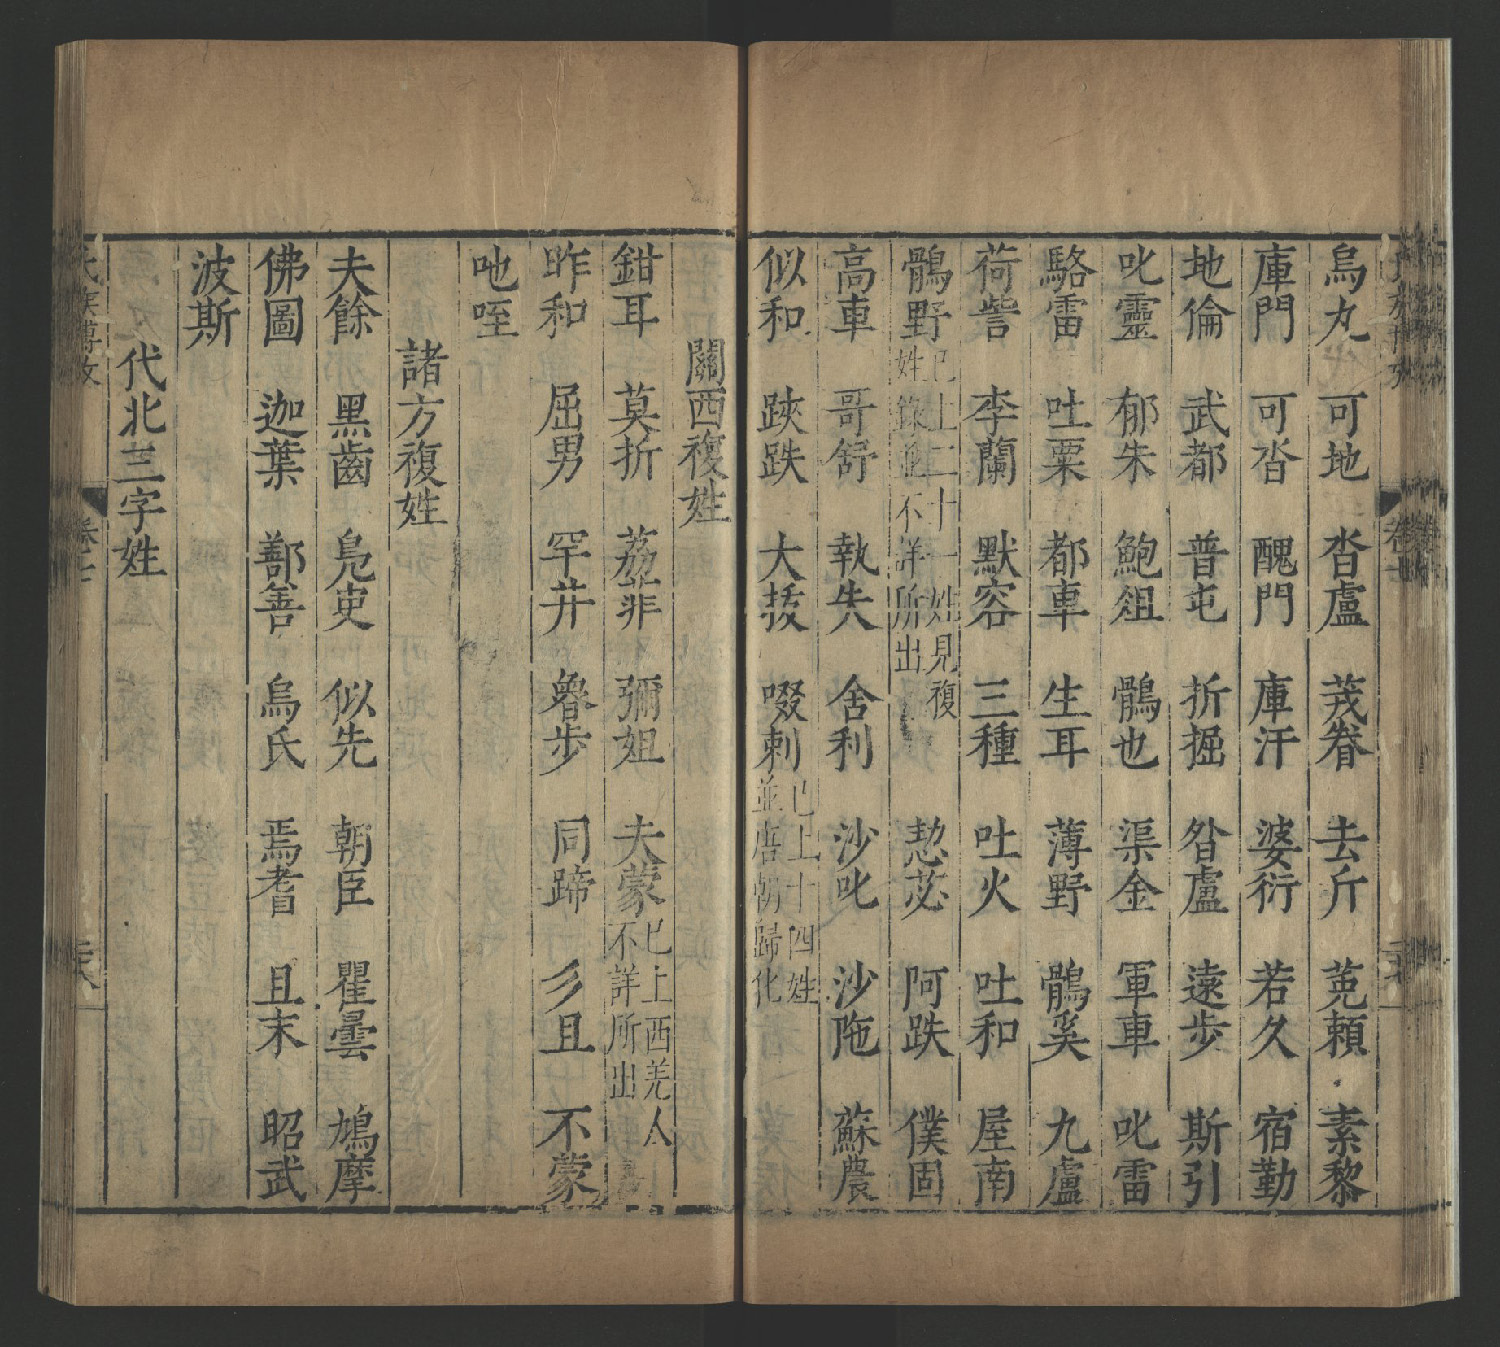 烏丸 可地 沓盧 茂眷 去斤 莵賴 素黎
庫門 可沓 醜門 庫汗 婆衍 若久 宿勤
地倫 武都 普屯 折掘 昝盧 遠步 斯引
叱靈 郁朱 鮑俎 鶻也 渠金 軍車 叱雷
駱雷 吐粟 都車 生耳 薄野 鶻奚 九盧
荷訾 李蘭 默容 三種 吐火 吐和 屋南
鶻野 已上二十一姓見複
姓錄並不詳所出
憨苾 阿跌 僕固
高車 哥舒 執失 舍利 沙叱 沙陁 蘇農
似和 跌跌 大拔 啜剌 已上十四姓
並唐朝歸化
關西複姓
鉗耳 莫折 荔菲 彌姐 夫蒙 已上西羌人
不詳所出
昨和 屈男 罕井 魯步 同蹄 彡且 不蒙
吔咥
諸方複姓
夫餘 黑齒 鳧臾 似先 朝臣 瞿曇 鳩摩
佛圖 迦葉 鄯善 烏氏 焉耆 且末 昭武
波斯
代北三字姓
氏族博攷
卷十